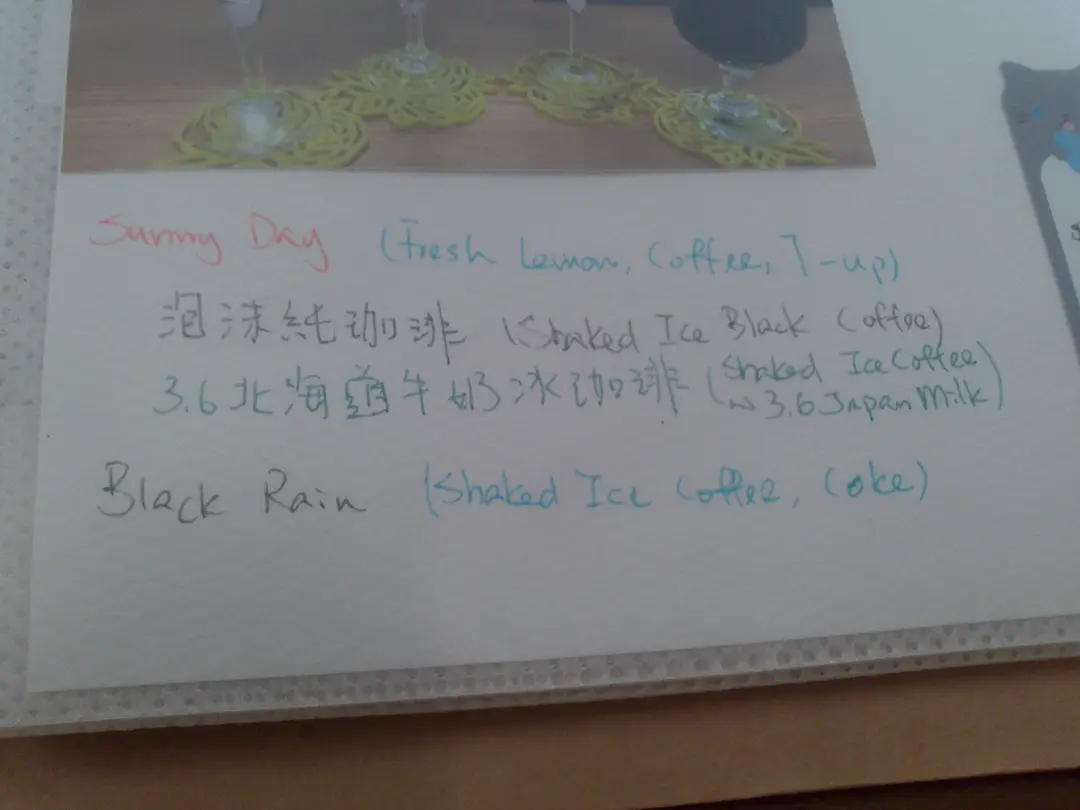 Sunny Day (Fresh Lemon, Coffee, 7-up)
泡沫純咖啡 (Shaked Ice Black Coffee)
3.6北海道牛奶冰咖啡 (Shaked Ice Coffee
w 3.6 Japan Milk)
Black Rain (Shaked Ice Coffee, Coke)